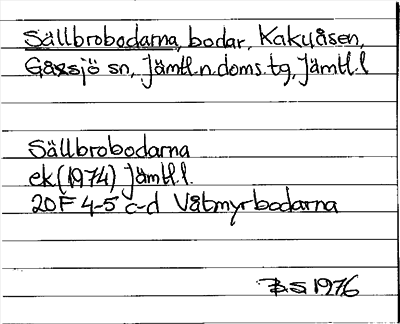 Sällbrobodarna, bodar, Kakuåsen,
Gåxsjö sn, Jämtl.n.doms.tg, Jämtl.l
Sällbrobodarna
ek (1974) Jämtl.l.
20F 4-5 c-d Våtmyrbodarna
B.S 1976